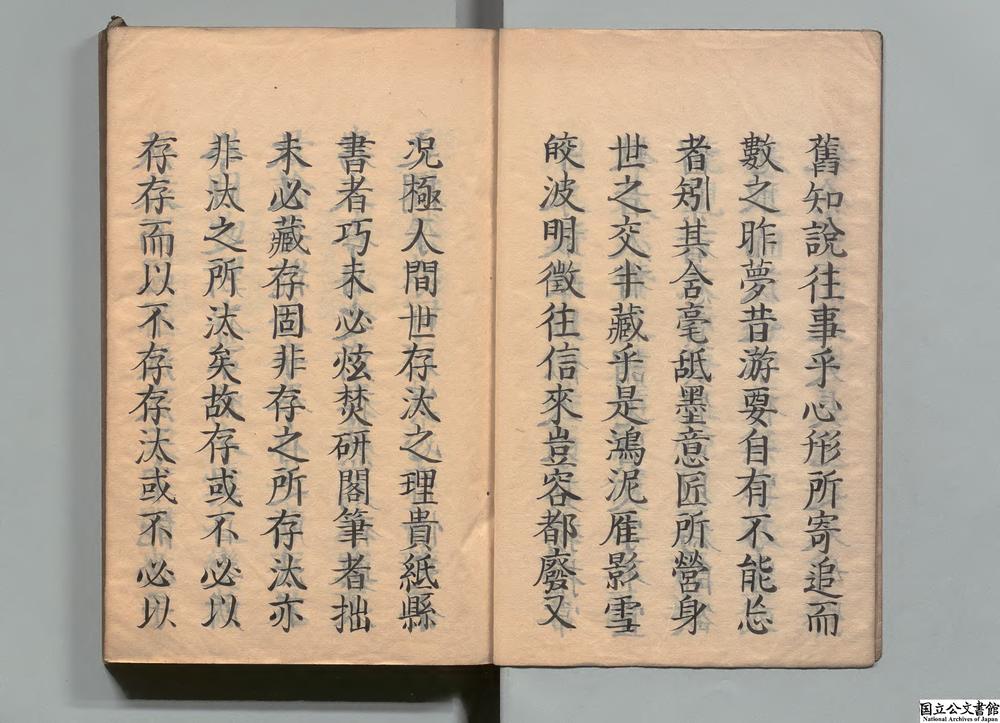 舊知說往事乎心形所寄追而
數之昨夢昔游要自有不能忘
者矧其含毫舐墨意匠所營身
世之交半藏乎是鴻泥雁影雪
皎波明徵往信來豈容都廢又
况極人間世存汰之理貴紙縣
書者巧未必炫焚研閣筆者拙
未必藏存固非存之所存汰亦
非汰之所汰矣故存或不必以
存存而以不存存汰或不必以
国立公文書館
National Archives of Japan